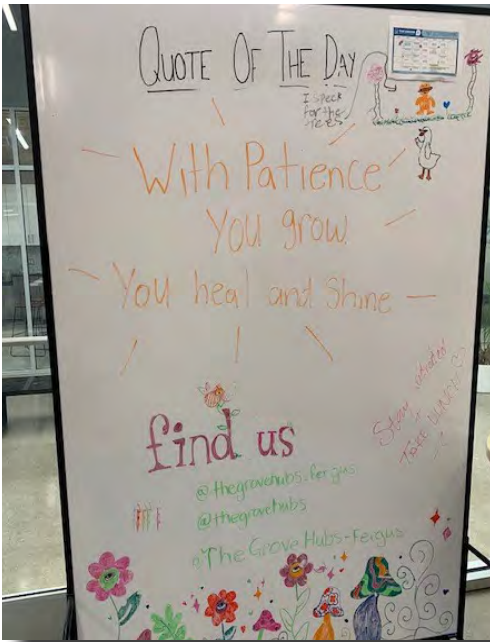 QUOTE OF THE DAY
I speck
for the
trees
With Patience
You grow
You heal and Shine
find us
@thegrovehubs.fergus
@thegrovehubs
The Grove Hubs-Fergus